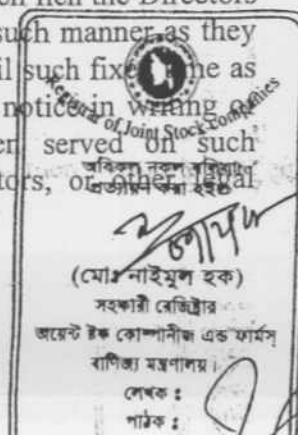 such manner as they
such fixe me as
notice in writing o
served on such
tors, or other
Registrar of Joint Stock Companies
অবিকল নকল
প্রত্যয়ন করা হইল
(মোঃ নাইমুল হক)
সহকারী রেজিষ্ট্রার
জয়েন্ট ষ্টক কোম্পানীজ এন্ড ফার্মস্
বাণিজ্য মন্ত্রণালয়।
লেখক :
পাঠক :